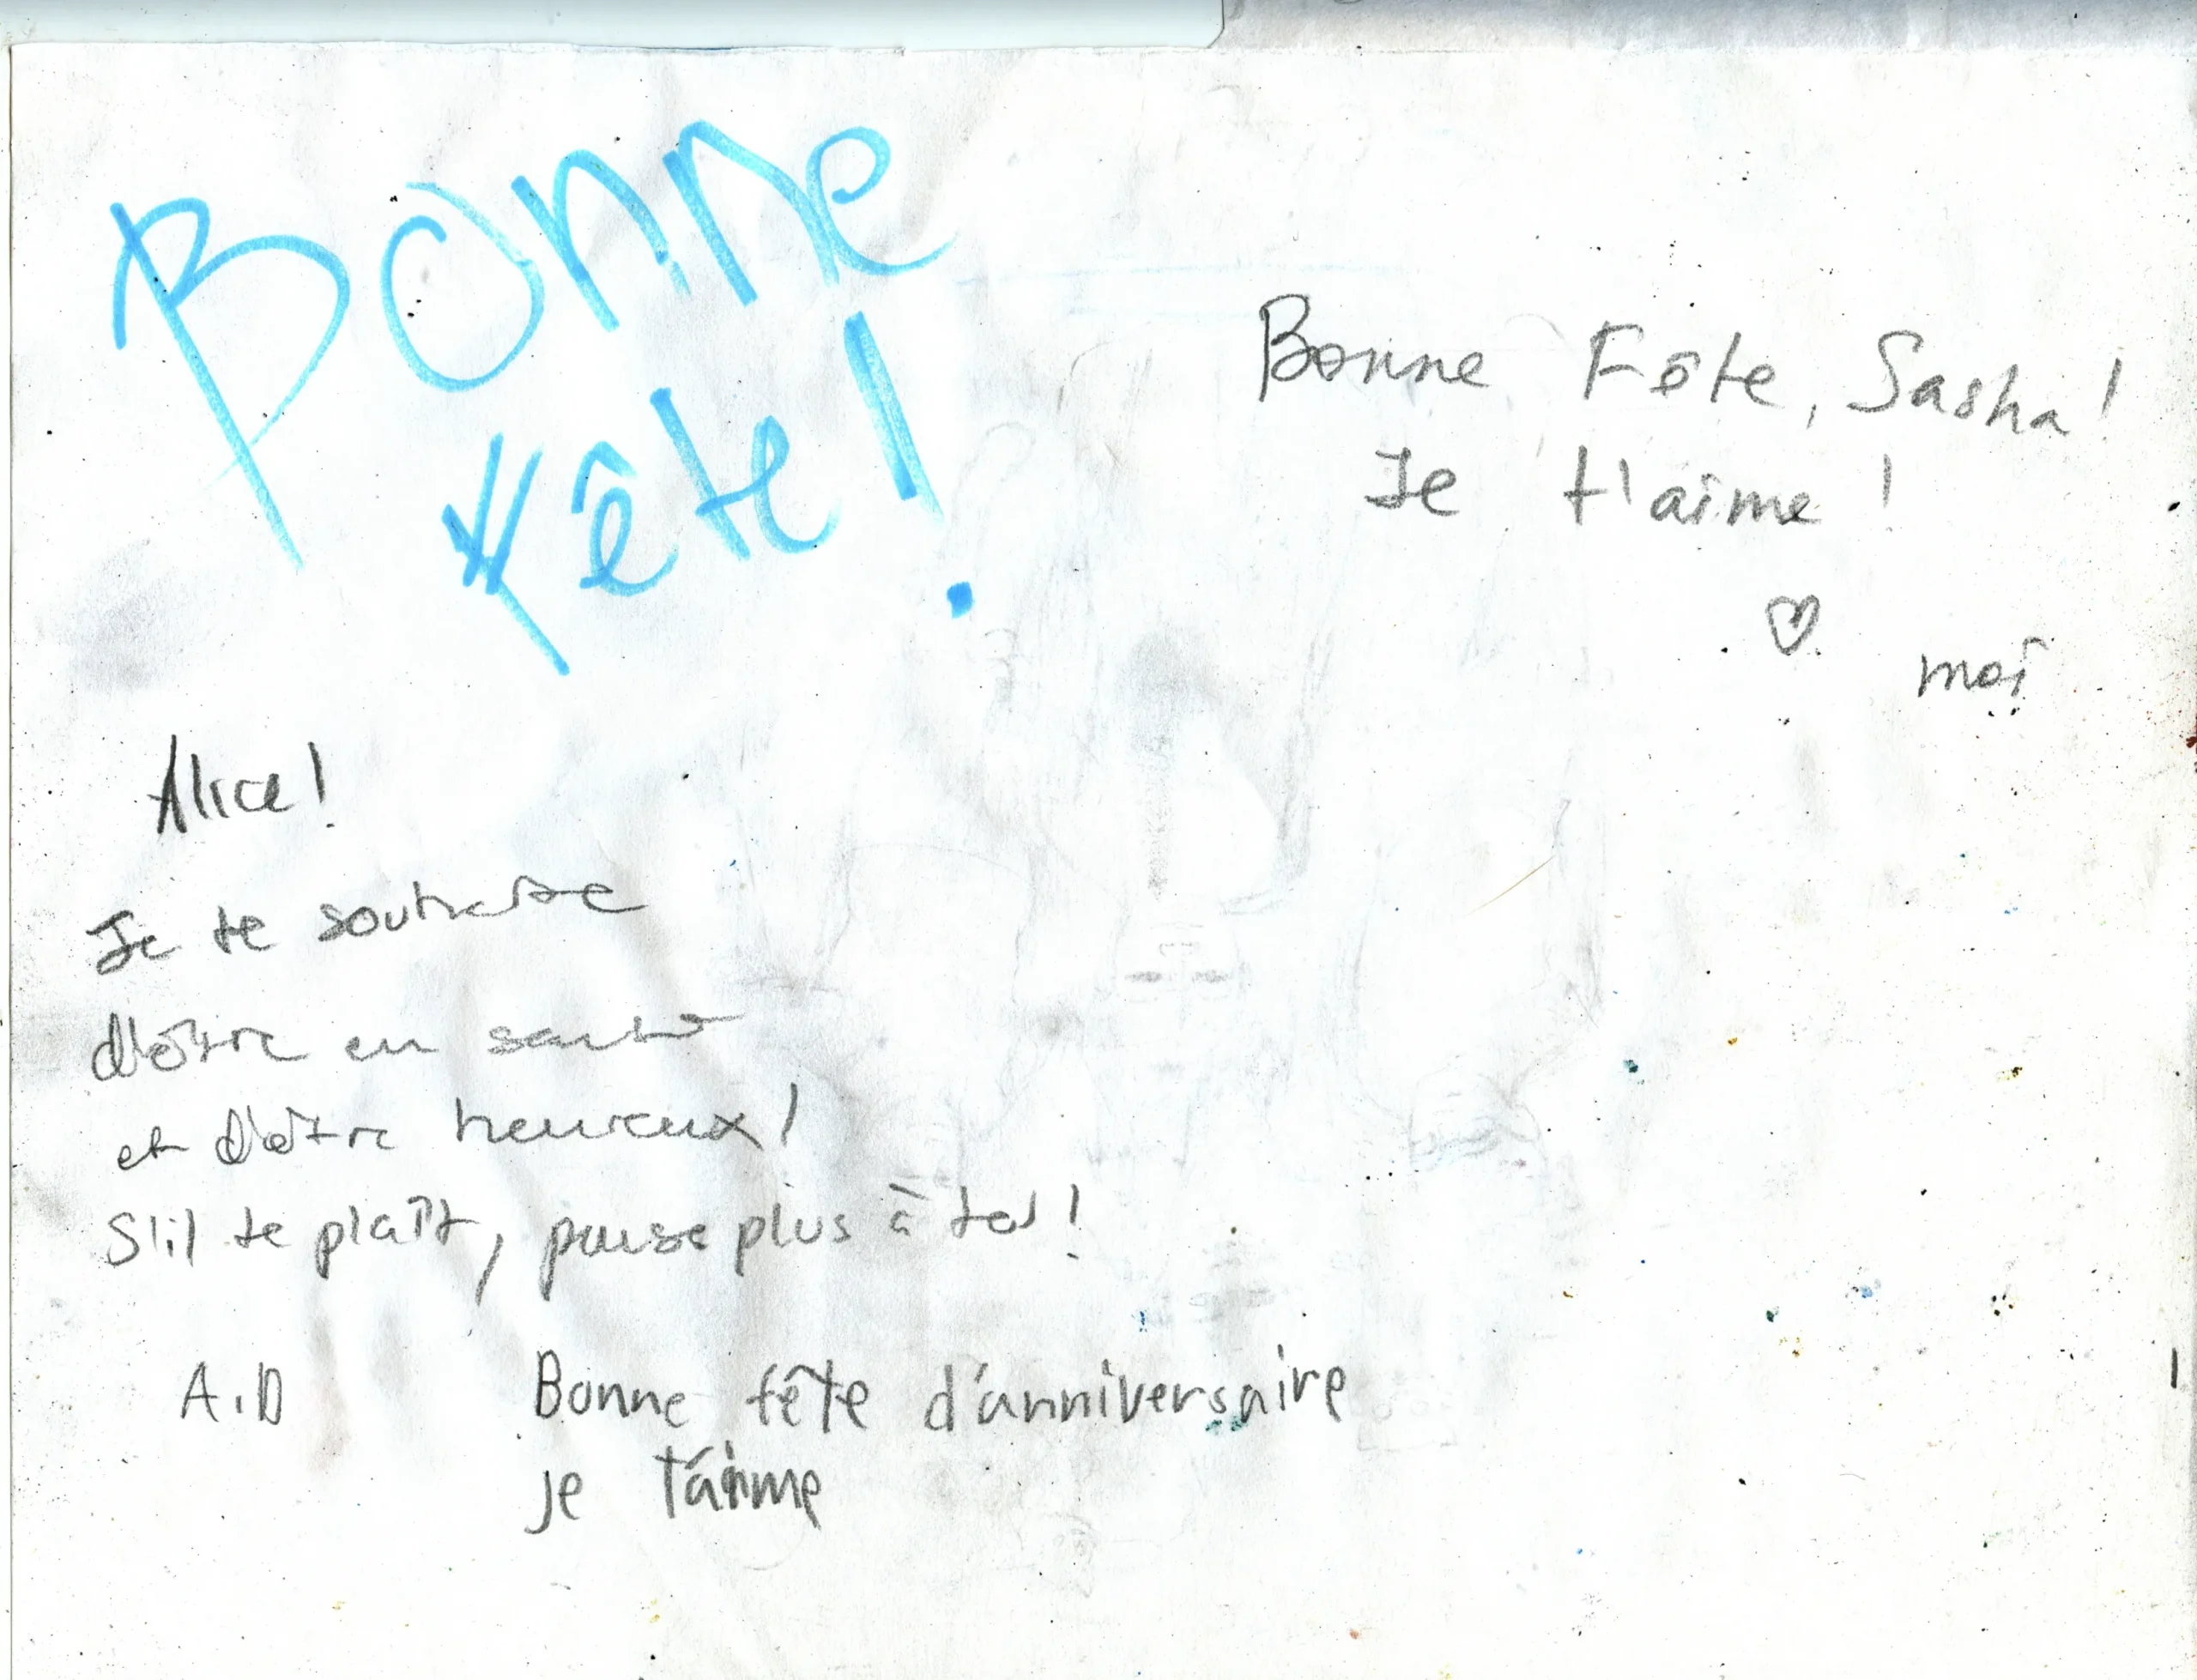 Bonne
fête!
Bonne Fête, Sasha!
Je t'aime!
moi
Alice!
Je te souhaite
d'être en santé
et d'être heureux!
S'il te plaît, pense plus à toi!
A.D
Bonne fête d'anniversaire
je t'aime